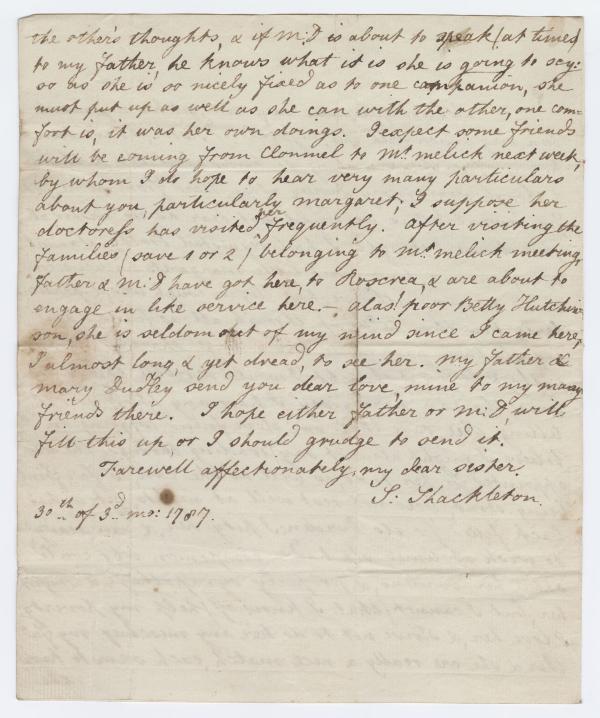 the other's thoughts, & if M:D is about to speak (at times)
to my father, he knows what it is she is going to say:
so as she is so nicely fixed as to one companion, she
must put up as well as she can with the other, one com-
fort is, it was her own doings. I expect some friends
will be coming from Clonmel to Mt. melick next week,
by whom I do hope to hear very many particulars
about you, particularly margaret; I suppose her
doctoress has visited her frequently. After visiting the
families (save 1 or 2) belonging to Mt. melick meeting,
father & M:D have got here, to Roscrea, & are about to
engage in like service here.- alas! poor Betty Hutchin-
son, she is seldom out of my mind since I came here,
I almost long, & yet dread, to see her. my father &
mary Dudley send you dear love, mine to my many
friends there. I hope either father or M:D, will
fill this up, or I should grudge to send it.
Farewell affectionately, my dear sister.
S: Shackleton.
30th of 3d mo: 1787.